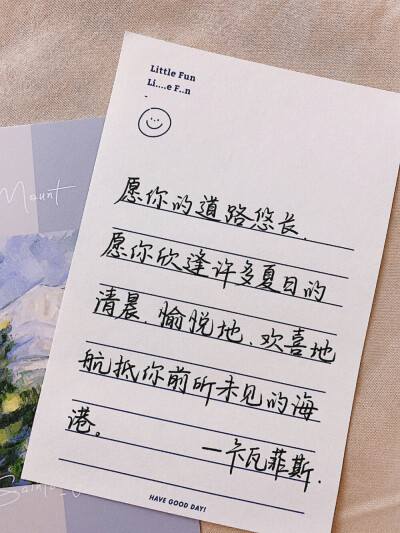 Little Fun
Li....e F..n
愿你的道路悠长.
愿你欣逢许多夏日的
清晨.愉悦地.欢喜地
航抵你前所未见的海
港。
一卡瓦菲斯.
HAVE GOOD DAY!
Mount
Sainte_